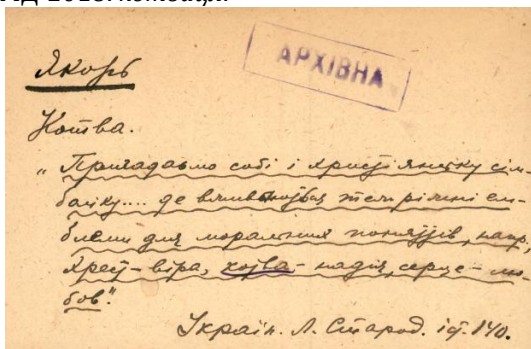 Якорь
АРХІВНА
Котва.
"Пригадаймо собі і християнську сім-
баліку.... де вживаються матеріяльні ем-
блеми для моральних поняттів, напр.,
хрест – віра, котва – надія, серце – лю-
бов".
Україн. А. Старод. іст. 140.